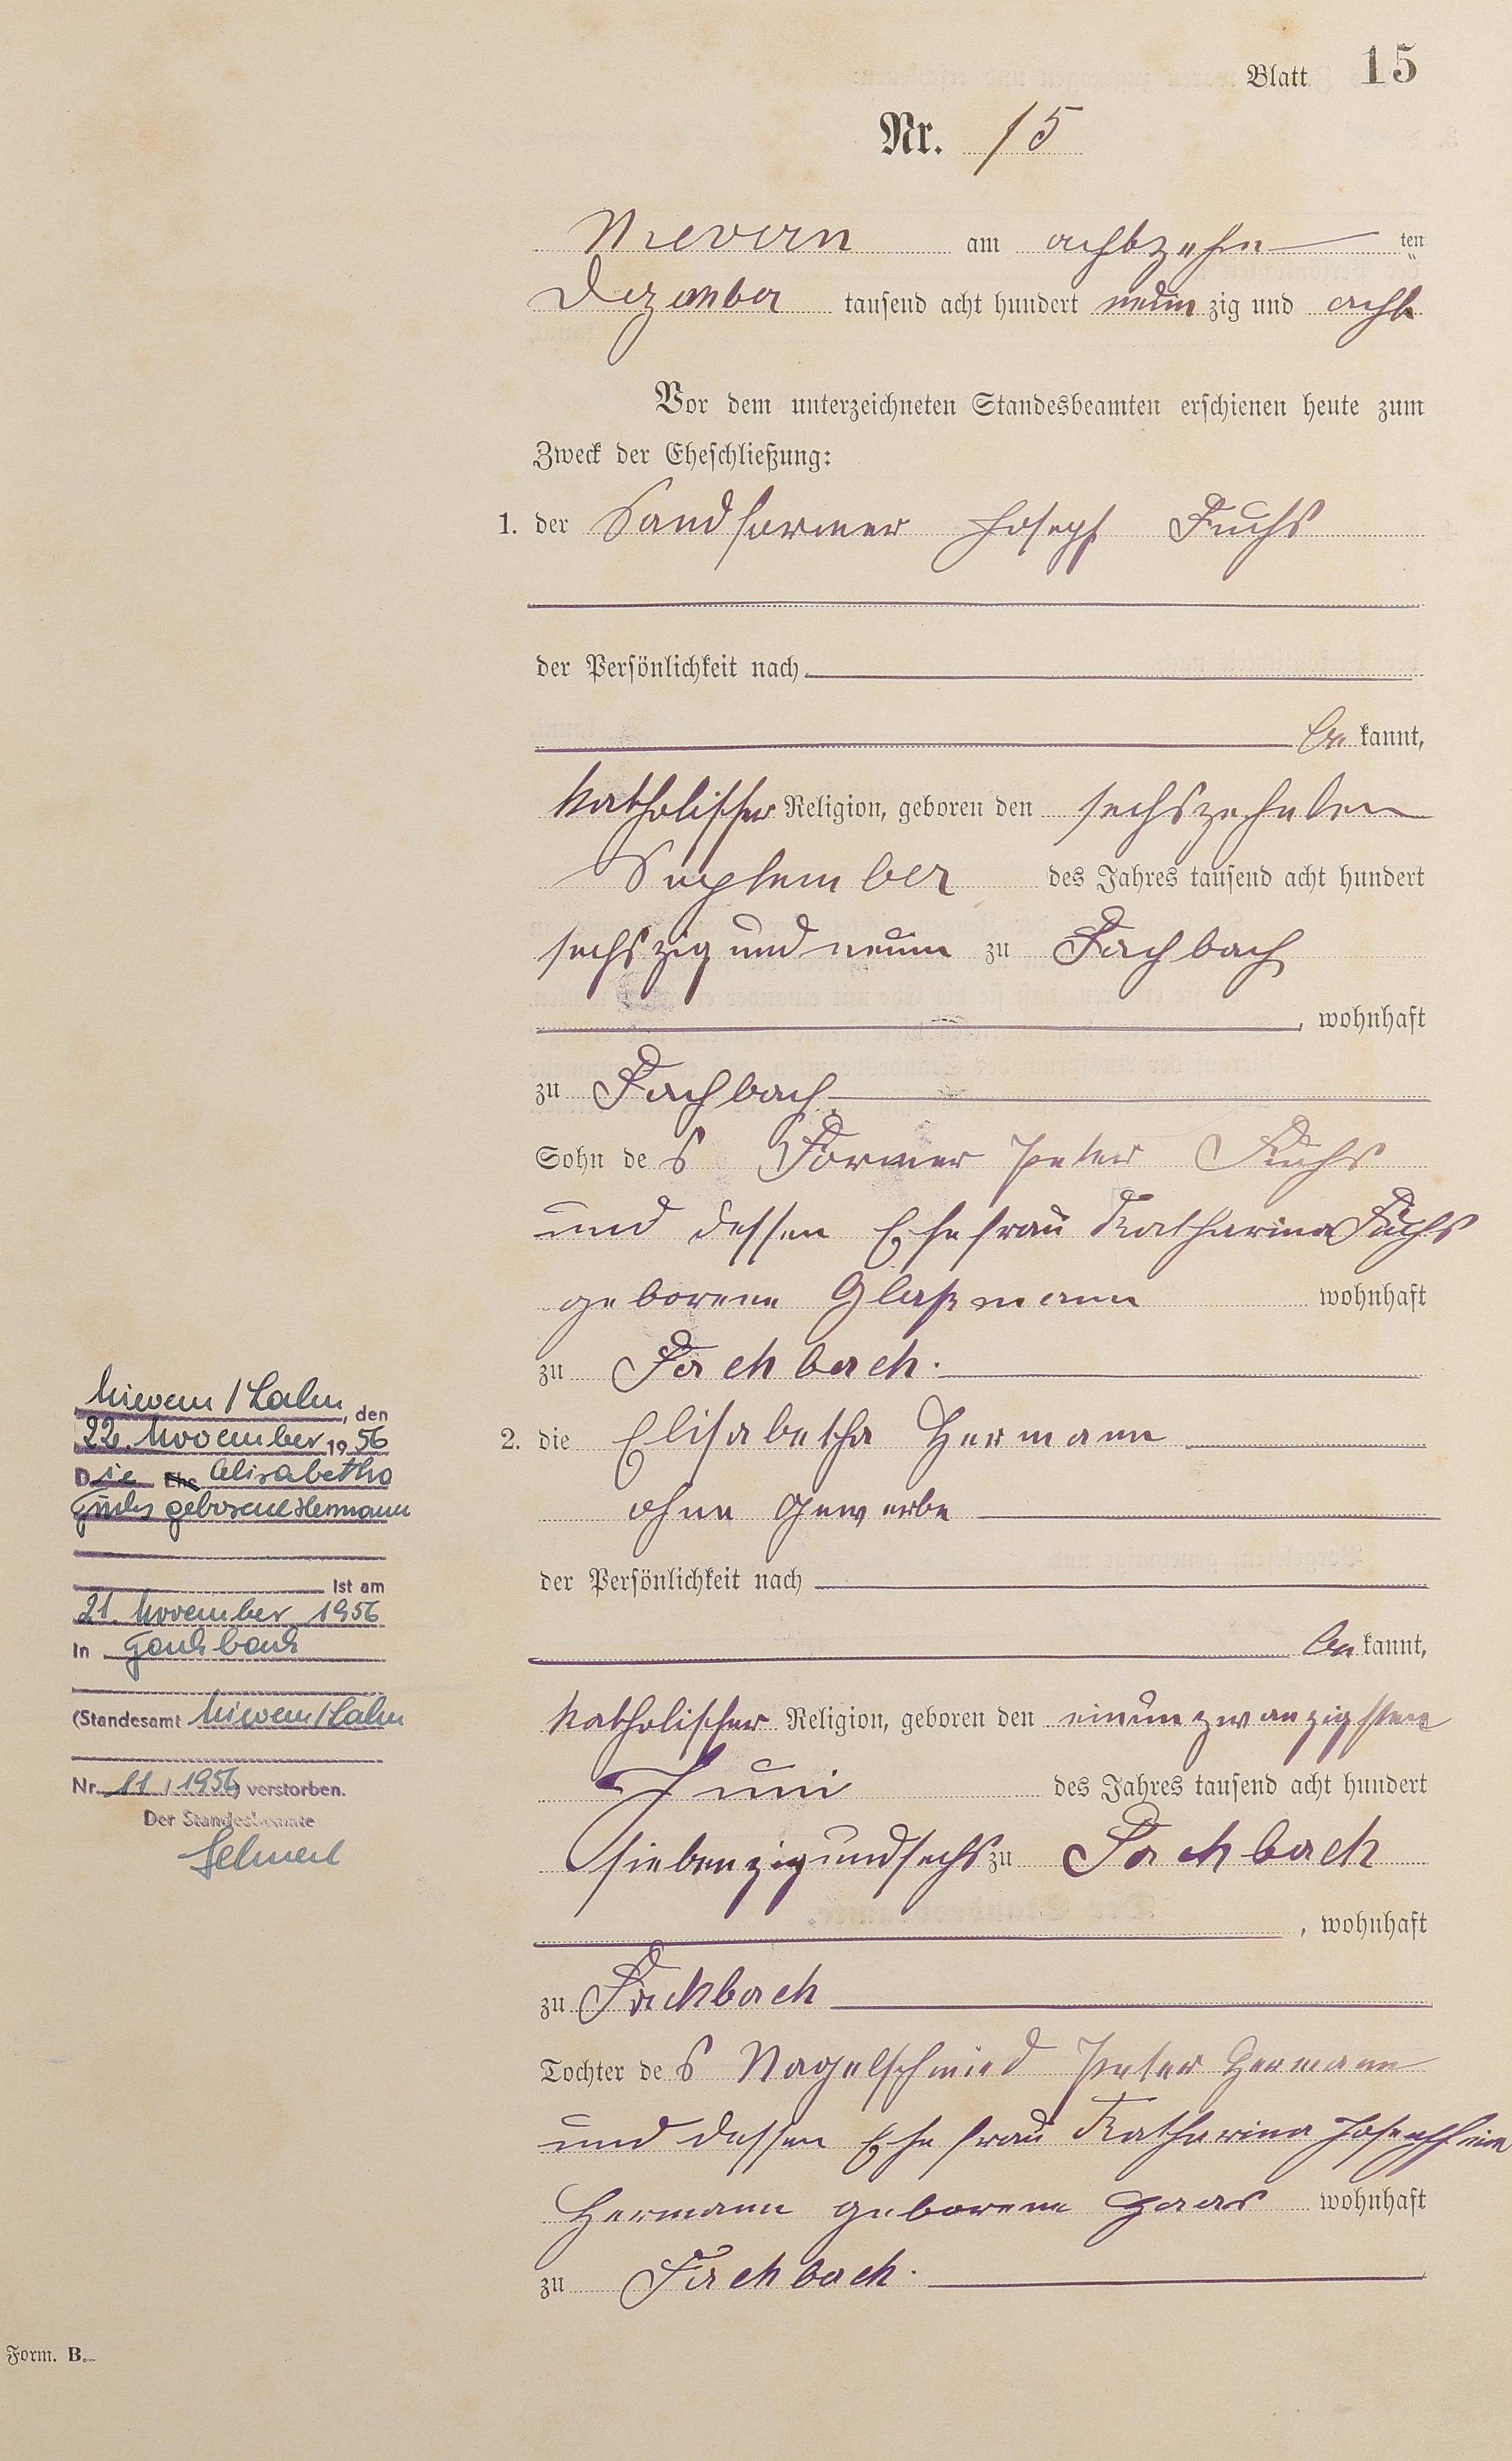 Blatt 15
Nr. 15
Nievern am achtzehn ten
Dezember tausend acht hundert neun zig und acht
Vor dem unterzeichneten Standesbeamten erschienen heute zum
Zweck der Eheschließung:
1. der Sandformer Joseph Fuchs
der Persönlichkeit nach
be kannt,
katholischer Religion, geboren den sechszehnten
September des Jahres tausend acht hundert
sechszig und neun zu Fachbach
, wohnhaft
zu Fachbach
Sohn de s Former Peter Fuchs
und dessen Ehefrau Katharina Fuchs
geborene Glaßmann wohnhaft
zu Fachbach.
2. die Elisabetha Hermann
ohne Gewerbe
der Persönlichkeit nach
be kannt,
katholischer Religion, geboren den einunzwanzigsten
Juni des Jahres tausend acht hundert
siebenzig und sechs zu Fachbach
, wohnhaft
zu Fachbach
Tochter de s Nagelschmied Peter Hermann
und dessen Ehefrau Katharina Josephine
Hermann geborene Haas wohnhaft
zu Fachbach.
Nievern / Lahn, den
22. November 19 56
Die Ehe Elisabetha
Fuchs geborene Hermann
ist am
21. November 1956
in Fachbach
(Standesamt Nievern / Lahn
Nr. 11 / 1956) verstorben.
Der Standesbeamte
Form. B.